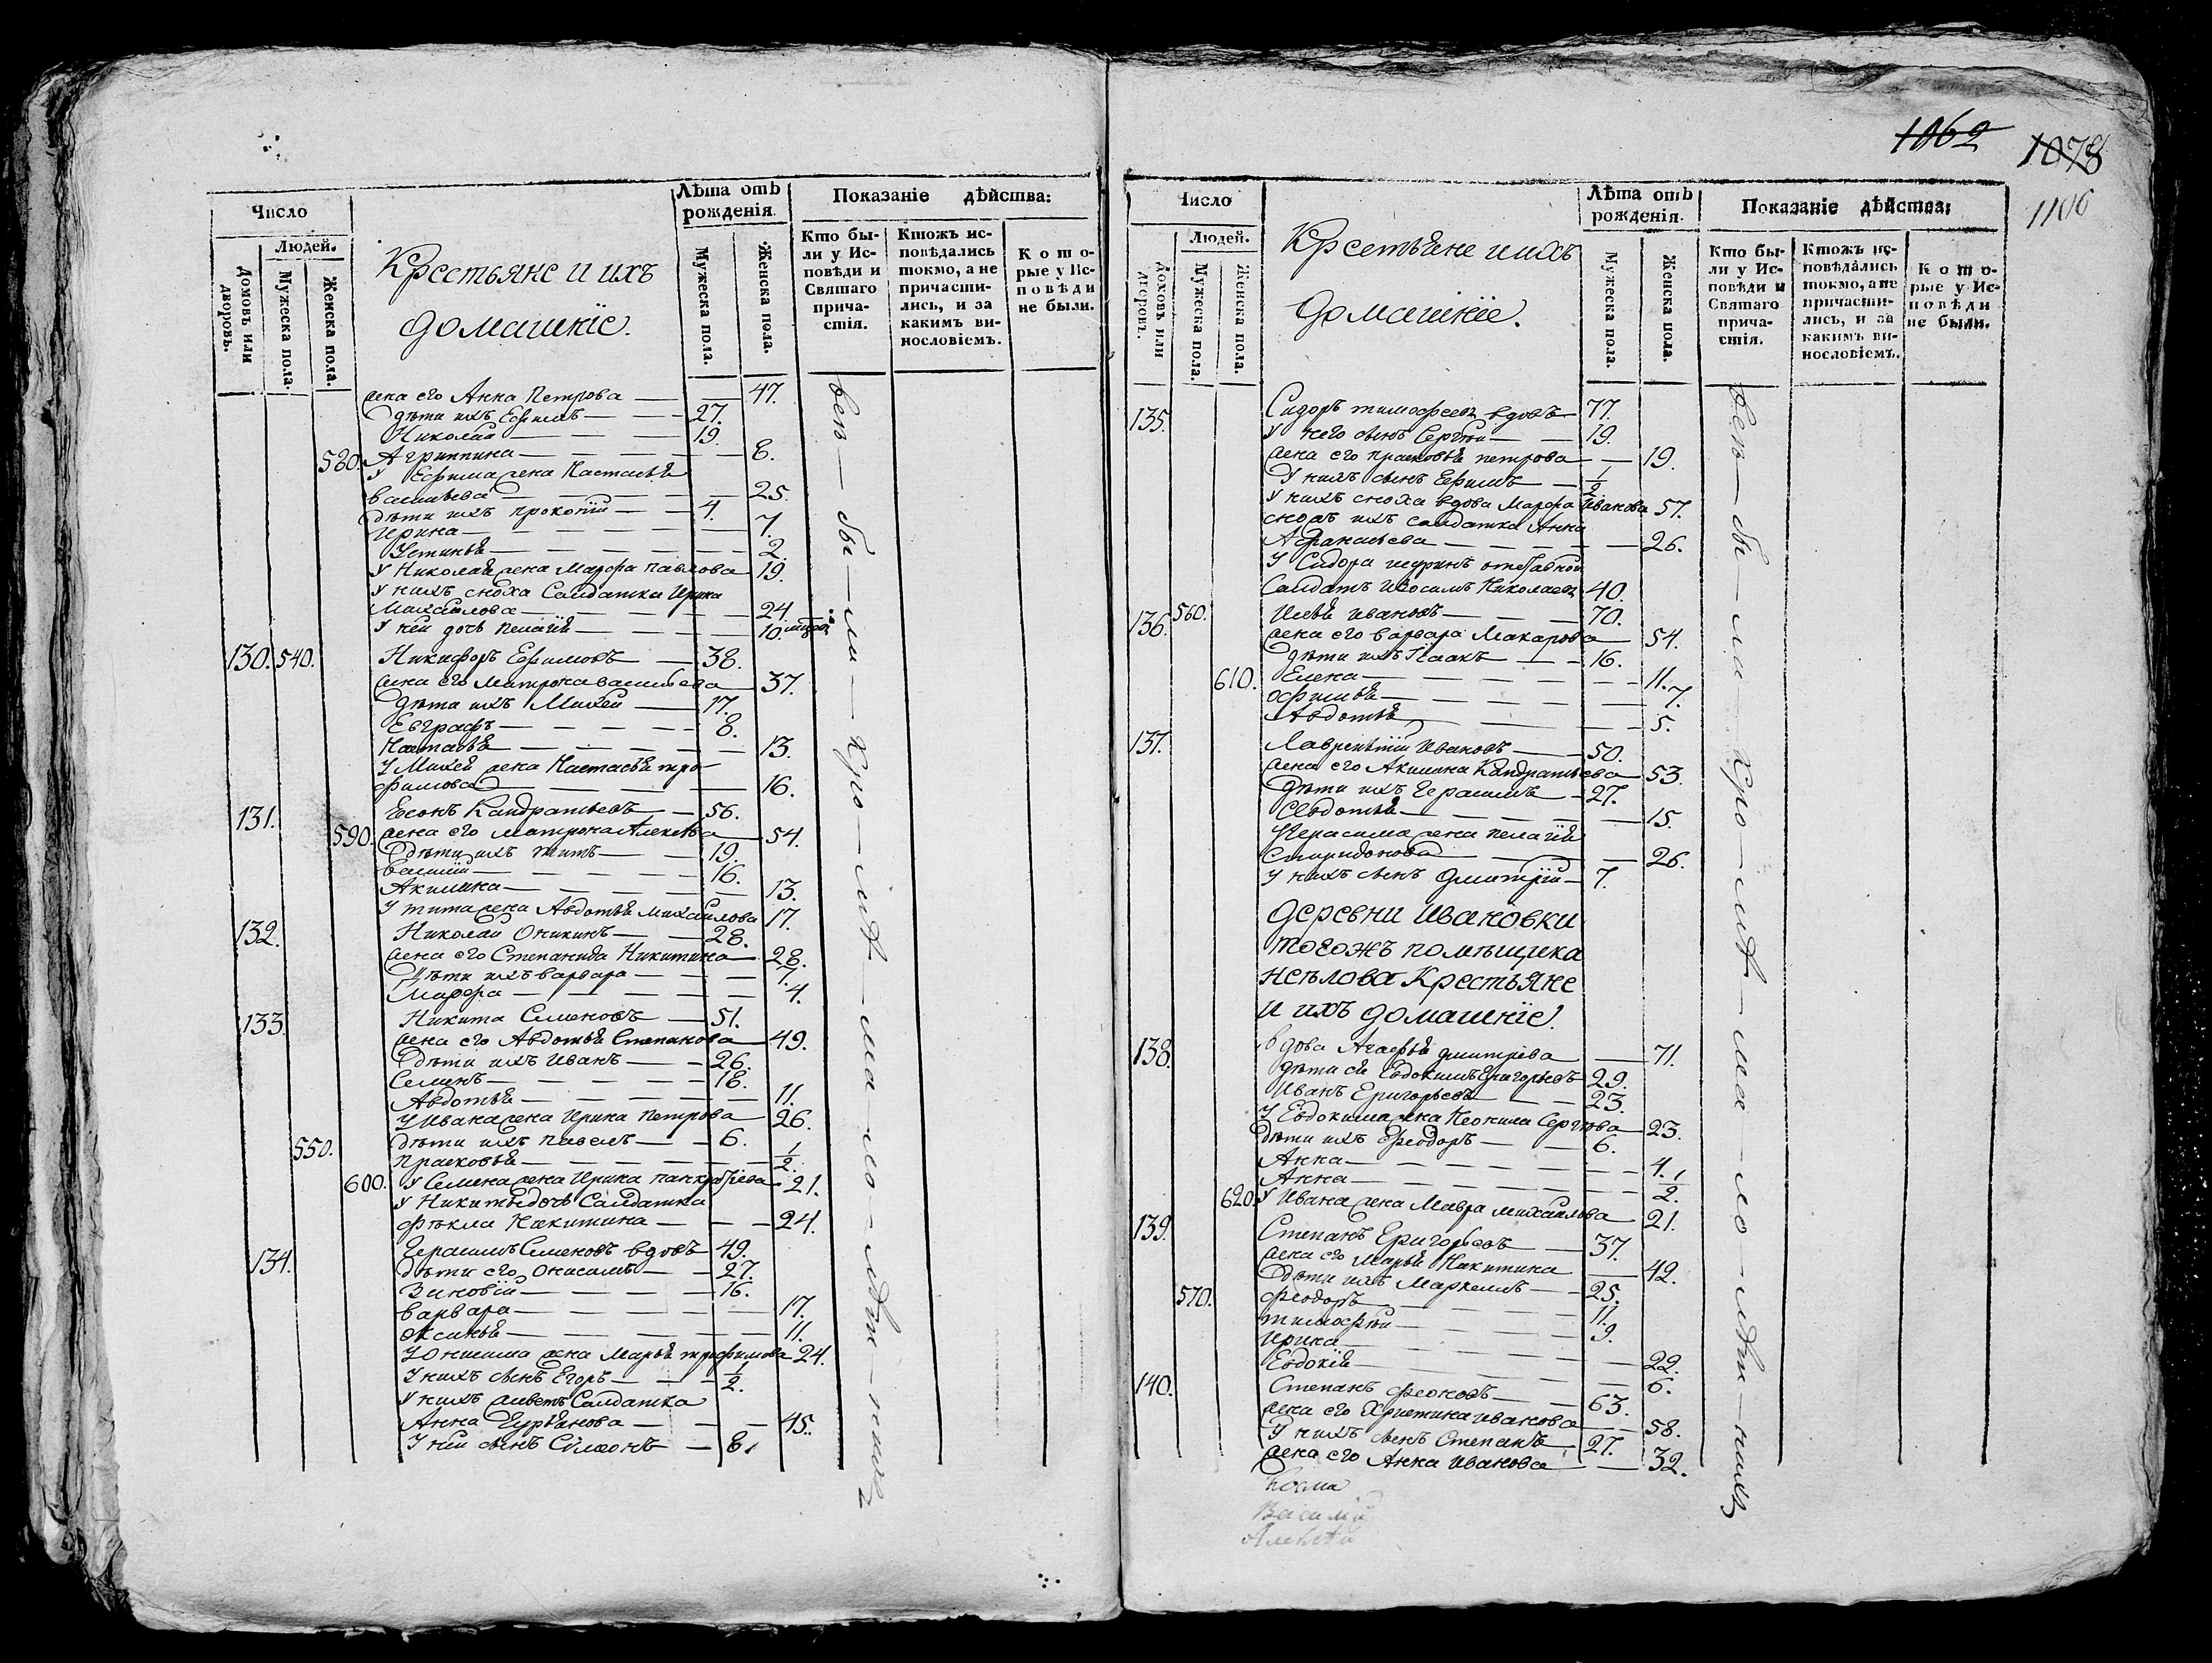 Число
Людей.
Домовъ или дворовъ.
Мужеска пола.
Женска пола.
Крестьяне и ихъ
домашніе.
Лѣта отъ
рожденія.
Мужеска пола.
Женска пола.
Показаніе дѣйства:
Кто бы-
ли у Ис-
повѣди и
Святаго
прича-
стія.
Ктожъ ис-
повѣдались
токмо, а не
причасти-
лись, и за
какимъ ви-
нословіемъ.
К о т о-
рые у Ис-
п о в ѣ д и
не были.
жена его Анна Петрова — 47.
дѣти ихъ Ефимъ — 27.
Николай — 19.
580. Агриппина — 8.
У Ефима жена Настасья
Васильева — 25.
дѣти ихъ Прокопій — 4.
Ирина — 7.
Устинья — 2.
У Николая жена Марфа Павлова 19.
У нихъ сноха Салдатка Ирина
Михаилова — 24
У ней дочь Пелагія — 10.
130. 540. Никифоръ Ефимовъ — 38.
жена его Матрона Васильева — 37.
дѣти ихъ Михей — 17.
Евграфъ — 8.
Настасья — 13.
У Михея жена Настасья Тро-
фимова — 16.
131. Ксонъ Кандратьевъ — 56.
590. жена его Матрона Алексѣева — 54.
дѣти ихъ Титъ — 19.
Василій — 16.
Акилина — 13.
У Тита жена Авдотья Михаилова 17.
132. Николай Оникинъ — 28.
жена его Степанида Никитина — 28.
дѣти ихъ Варвара — 7.
Марфа — 4.
133. Никита Семеновъ — 51.
жена его Авдотья Степанова — 49.
дѣти ихъ Иванъ — 26.
Семенъ — 18.
Авдотья — 11.
У Ивана жена Ирина Петрова — 26.
550. дѣти ихъ Павелъ — 6.
Прасковья — 1/2.
600. У Семена жена Ирина Панкратіева 21.
У Никиты дочь Салдатка
Фекла Никитина — 24.
134. Герасимъ Семеновъ вдовъ 49.
дѣти его Онисимъ — 27.
Зиновій — 16.
Варвара — 17.
Аксинья — 11.
У Онисима жена Марья Трофимова 24.
У нихъ сынъ Егоръ — 1/2.
У нихъ живетъ Салдатка
Анна Гурьянова — 45.
У ней сынъ Симеонъ — 8.
всѣ — бы — ли
1062
1078
1106
Число
Людей.
Домовъ или дворовъ.
Мужеска пола.
Женска пола.
Крестьяне и ихъ
домашніе.
Лѣта отъ
рожденія.
Мужеска пола.
Женска пола.
Показаніе дѣйства:
Кто бы-
ли у Ис-
повѣди и
Святаго
прича-
стія.
Ктожъ ис-
повѣдались
токмо, а не
причасти-
лись, и за
какимъ ви-
нословіемъ.
К о т о-
рые у Ис-
п о в ѣ д и
не были.
135. Сидоръ Тимофеевъ вдовъ — 77.
У него сынъ Сергѣй — 19.
жена его Прасковья Петрова — 19.
У нихъ сынъ Ефимъ — 1/2
У нихъ сноха вдова Марфа Иванова 57.
сноха ихъ салдатка Анна
Афанасьева — 26.
У Сидора шуринъ отставной
Салдатъ Николаевъ 40.
136. 560. Илья Ивановъ — 70.
жена его Варвара Макарова — 54.
дѣти ихъ Исаакъ — 16.
610. Елена — 11.
Офимья — 7.
Авдотья — 5.
137. Лаврентій Ивановъ — 50.
жена его Акилина Кандратьева 53.
дѣти ихъ Герасимъ — 27.
Евдотья — 15.
У Герасима жена Пелагія
Спиридонова — 26.
У нихъ сынъ Дмитрій — 7.
деревни Ивановки
тогожъ помѣщика
Неѣлова Крестьяне
и ихъ домашніе.
138. Вдова Агафья Дмитріева — 71.
дѣти ея Евдокимъ Григорьевъ 29.
Иванъ Григорьевъ — 23.
У Евдокима жена Неонила Сергѣева 23.
дѣти ихъ Феодоръ — 6.
Анна — 4.
Анна — 1/2.
620. У Ивана жена Мавра Михаилова 21.
139. Степанъ Григорьевъ — 37.
жена его Марья Никитина — 42.
дѣти ихъ Маркелъ — 25.
570. Феодоръ — 11.
Тимофѣй — 9.
Ирина — 22.
Евдокія — 6.
140. Степанъ Феоновъ — 63.
жена его Христина Иванова — 58.
У нихъ сынъ Степанъ — 27.
жена его Анна Иванова — 32.
Косма
Василій
Алексѣй
всѣ — бы — ли